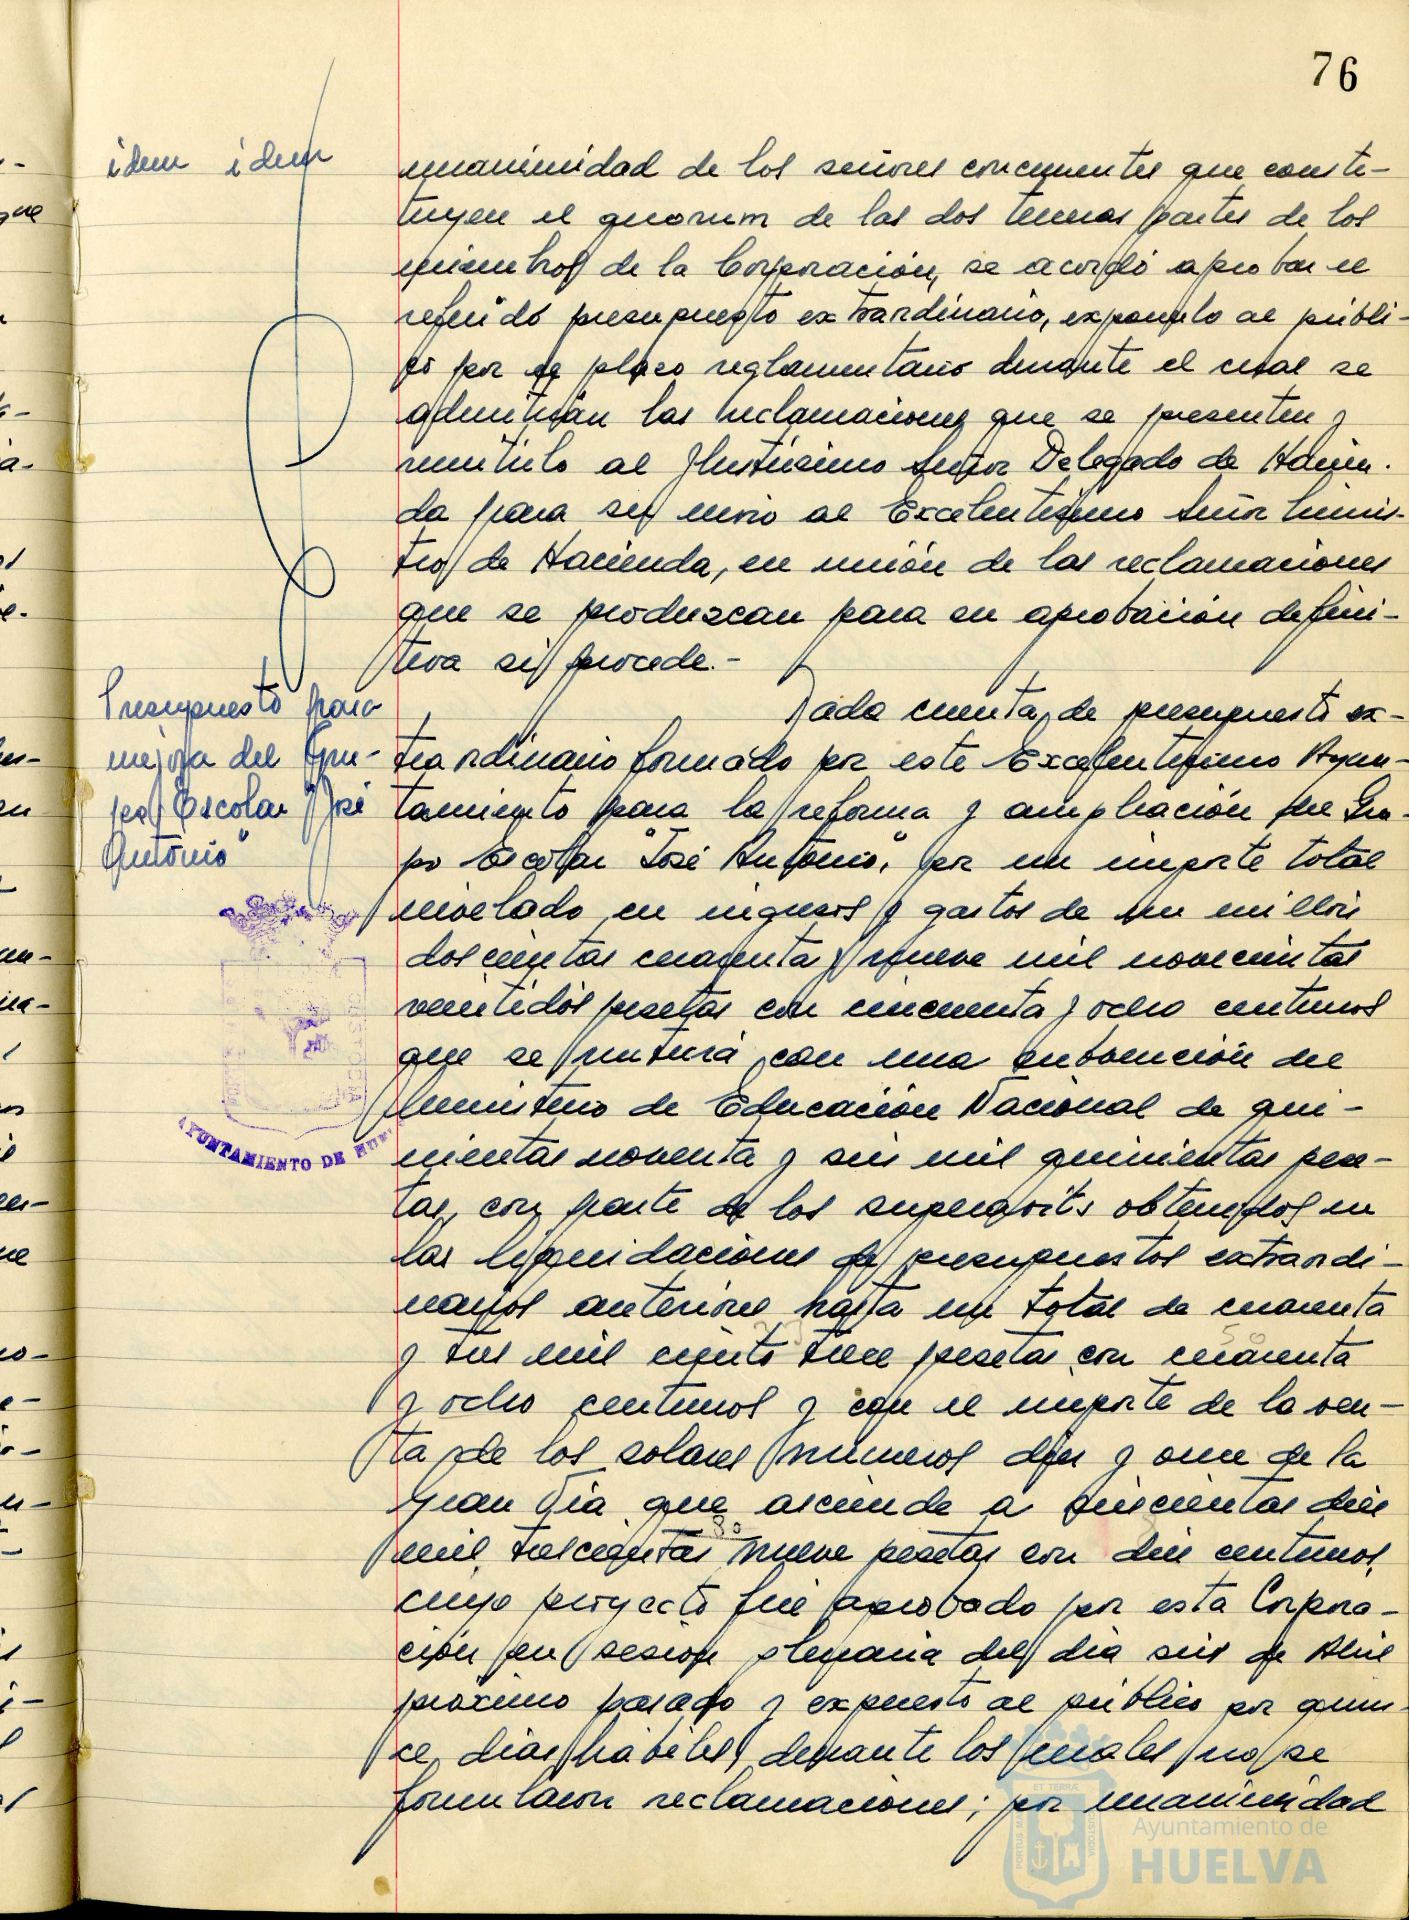 76
idem idem
unanimidad de los señores concurrentes que consti-
tuyen el quorum de las dos terceras partes de los
miembros de la Corporación, se acordó aprobar el
referido presupuesto extraordinario, exponerlo al públi-
co por el plazo reglamentario durante el cual se
admitirán las reclamaciones que se presenten y
remitirlo al Ilustrísimo Señor Delegado de Hacien-
da para su envio al Excelentísimo Señor Minis-
tro de Hacienda, en unión de las reclamaciones
que se produzcan para su aprobación defini-
tiva si procede.-
Presupuesto para
mejora del Gru-
po Escolar "José
Antonio"
Dada cuenta de presupuesto ex-
traordinario formado por este Excelentísimo Ayun-
tamiento para la reforma y ampliación del Gru-
po Escolar "José Antonio", por un importe total
nivelado en ingresos y gastos de un millón
doscientas cuarenta y nueve mil novecientas
veintidós pesetas con cincuenta y ocho centimos
que se nutrirá con una subvención del
Ministerio de Educación Nacional de qui-
nientas noventa y seis mil quinientas pese-
tas, con parte de los superavits obtenidos en
las liquidaciones de presupuestos extraordi-
narios anteriores hasta un total de cuarenta
y tres mil ciento trece pesetas con cuarenta
y ocho centimos y con el importe de la ven-
ta de los solares números diez y once de la
Gran Vía que asciende a seiscientas diez
80
mil trescientas nueve pesetas con diez centimos,
cuyo proyecto fué aprobado por esta Corpora-
ción en sesión plenaria del dia seis de Abril
próximo pasado y expuesto al público por quin-
ce dias hábiles, durante los cuales no se
formularon reclamaciones; por unanimidad
AYUNTAMIENTO DE HUEL
CUSTODIA
PORTUS MARIS ET TERRAE CUSTODIA
Ayuntamiento de
HUELVA